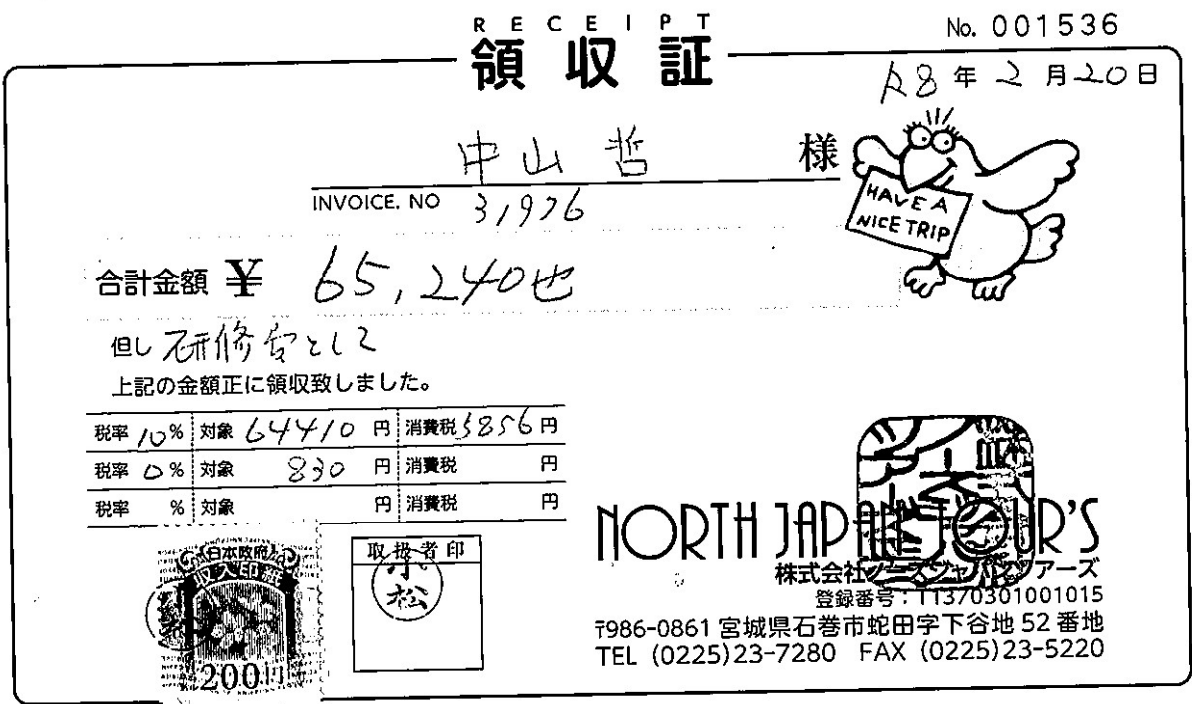 RECEIPT
領収証
No. 001536
R8年2月20日
中山 哲 様
INVOICE. NO 31976
HAVE A
NICE TRIP
合計金額 ¥ 65,240也
但し 研修会として
上記の金額正に領収致しました。
税率 10% 対象 64410 円 消費税 5856 円
税率 0% 対象 830 円 消費税 円
税率 % 対象 円 消費税 円
日本政府
収入印紙
200円
取扱者印
小松
NORTH JAPAN TOUR'S
株式会社ノースジャパンツアーズ
登録番号:T1370301001015
〒986-0861 宮城県石巻市蛇田字下谷地 52 番地
TEL (0225)23-7280 FAX (0225)23-5220